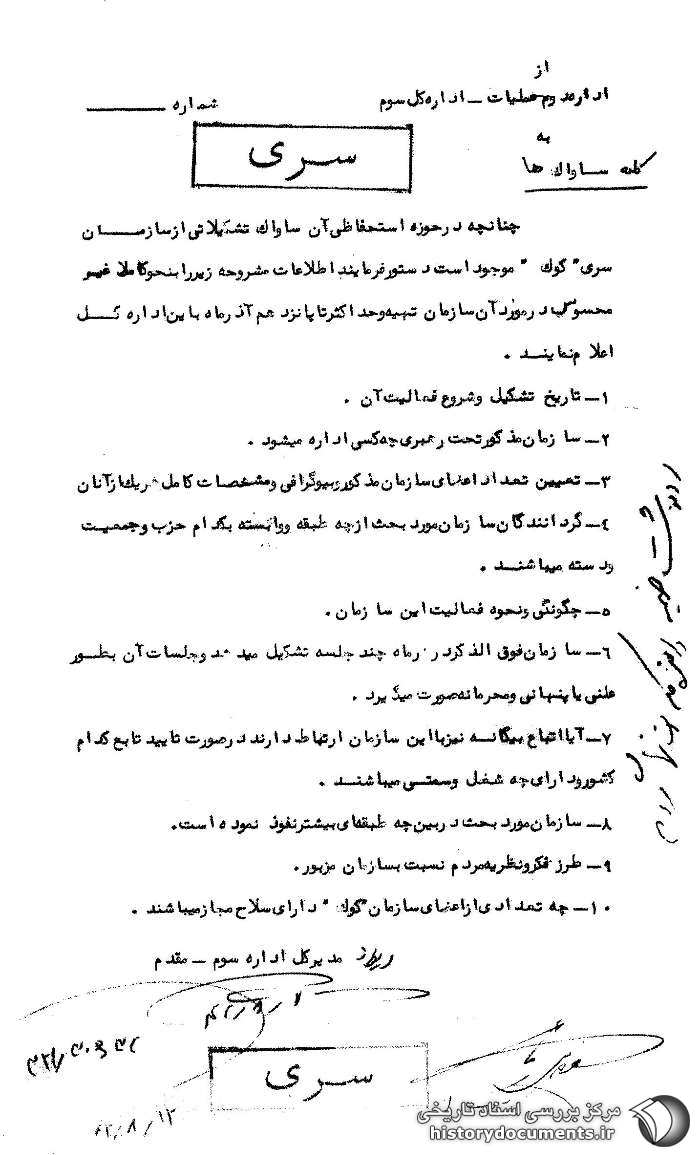 از
اداره دوم عملیات ــ اداره کل سوم
شماره
به
کلیه ساواک ها
سری
چنانچه در حوزه استحفاظی آن ساواک تشکیلاتی از سازمان
سری "کوک" موجود است دستور فرمایند اطلاعات مشروحه زیر را بنحو کاملا غیر
محسوس در مورد آن سازمان تهیه و حداکثر تا پانزدهم آذر ماه باین اداره کل
اعلام نمایند .
۱ــ تاریخ تشکیل و شروع فعالیت آن .
۲ــ سازمان مذکور تحت رهبری چه کسی اداره میشود .
۳ــ تعیین تعداد اعضای سازمان مذکور و بیوگرافی و مشخصات کامل هریک از آنان
٤ــ گردانندگان سازمان مورد بحث از چه طبقه و وابسته بکدام حزب و جمعیت
و دسته میباشند .
۵ــ چگونگی و نحوه فعالیت این سازمان .
٦ــ سازمان فوق الذکر در ماه چند جلسه تشکیل میدهد و جلسات آن بطور
علنی یا پنهانی و محرمانه صورت میگیرد .
۷ــ آیا اتباع بیگانه نیز با این سازمان ارتباط دارند در صورت تایید تابع کدام
کشور و دارای چه شغل و سمتی میباشند .
۸ــ سازمان مورد بحث در بین چه طبقه‌ای بیشتر نفوذ نموده است.
۹ــ طرز فکر و نظریه مردم نسبت بسازمان مزبور .
۱۰ــ چه تعدادی از اعضای سازمان "کوک" دارای سلاح مجاز میباشند .
مدیر کل اداره سوم ــ مقدم
سری
۴۲/۸/۱۳
مرکز بررسی اسناد تاریخی
historydocuments.ir